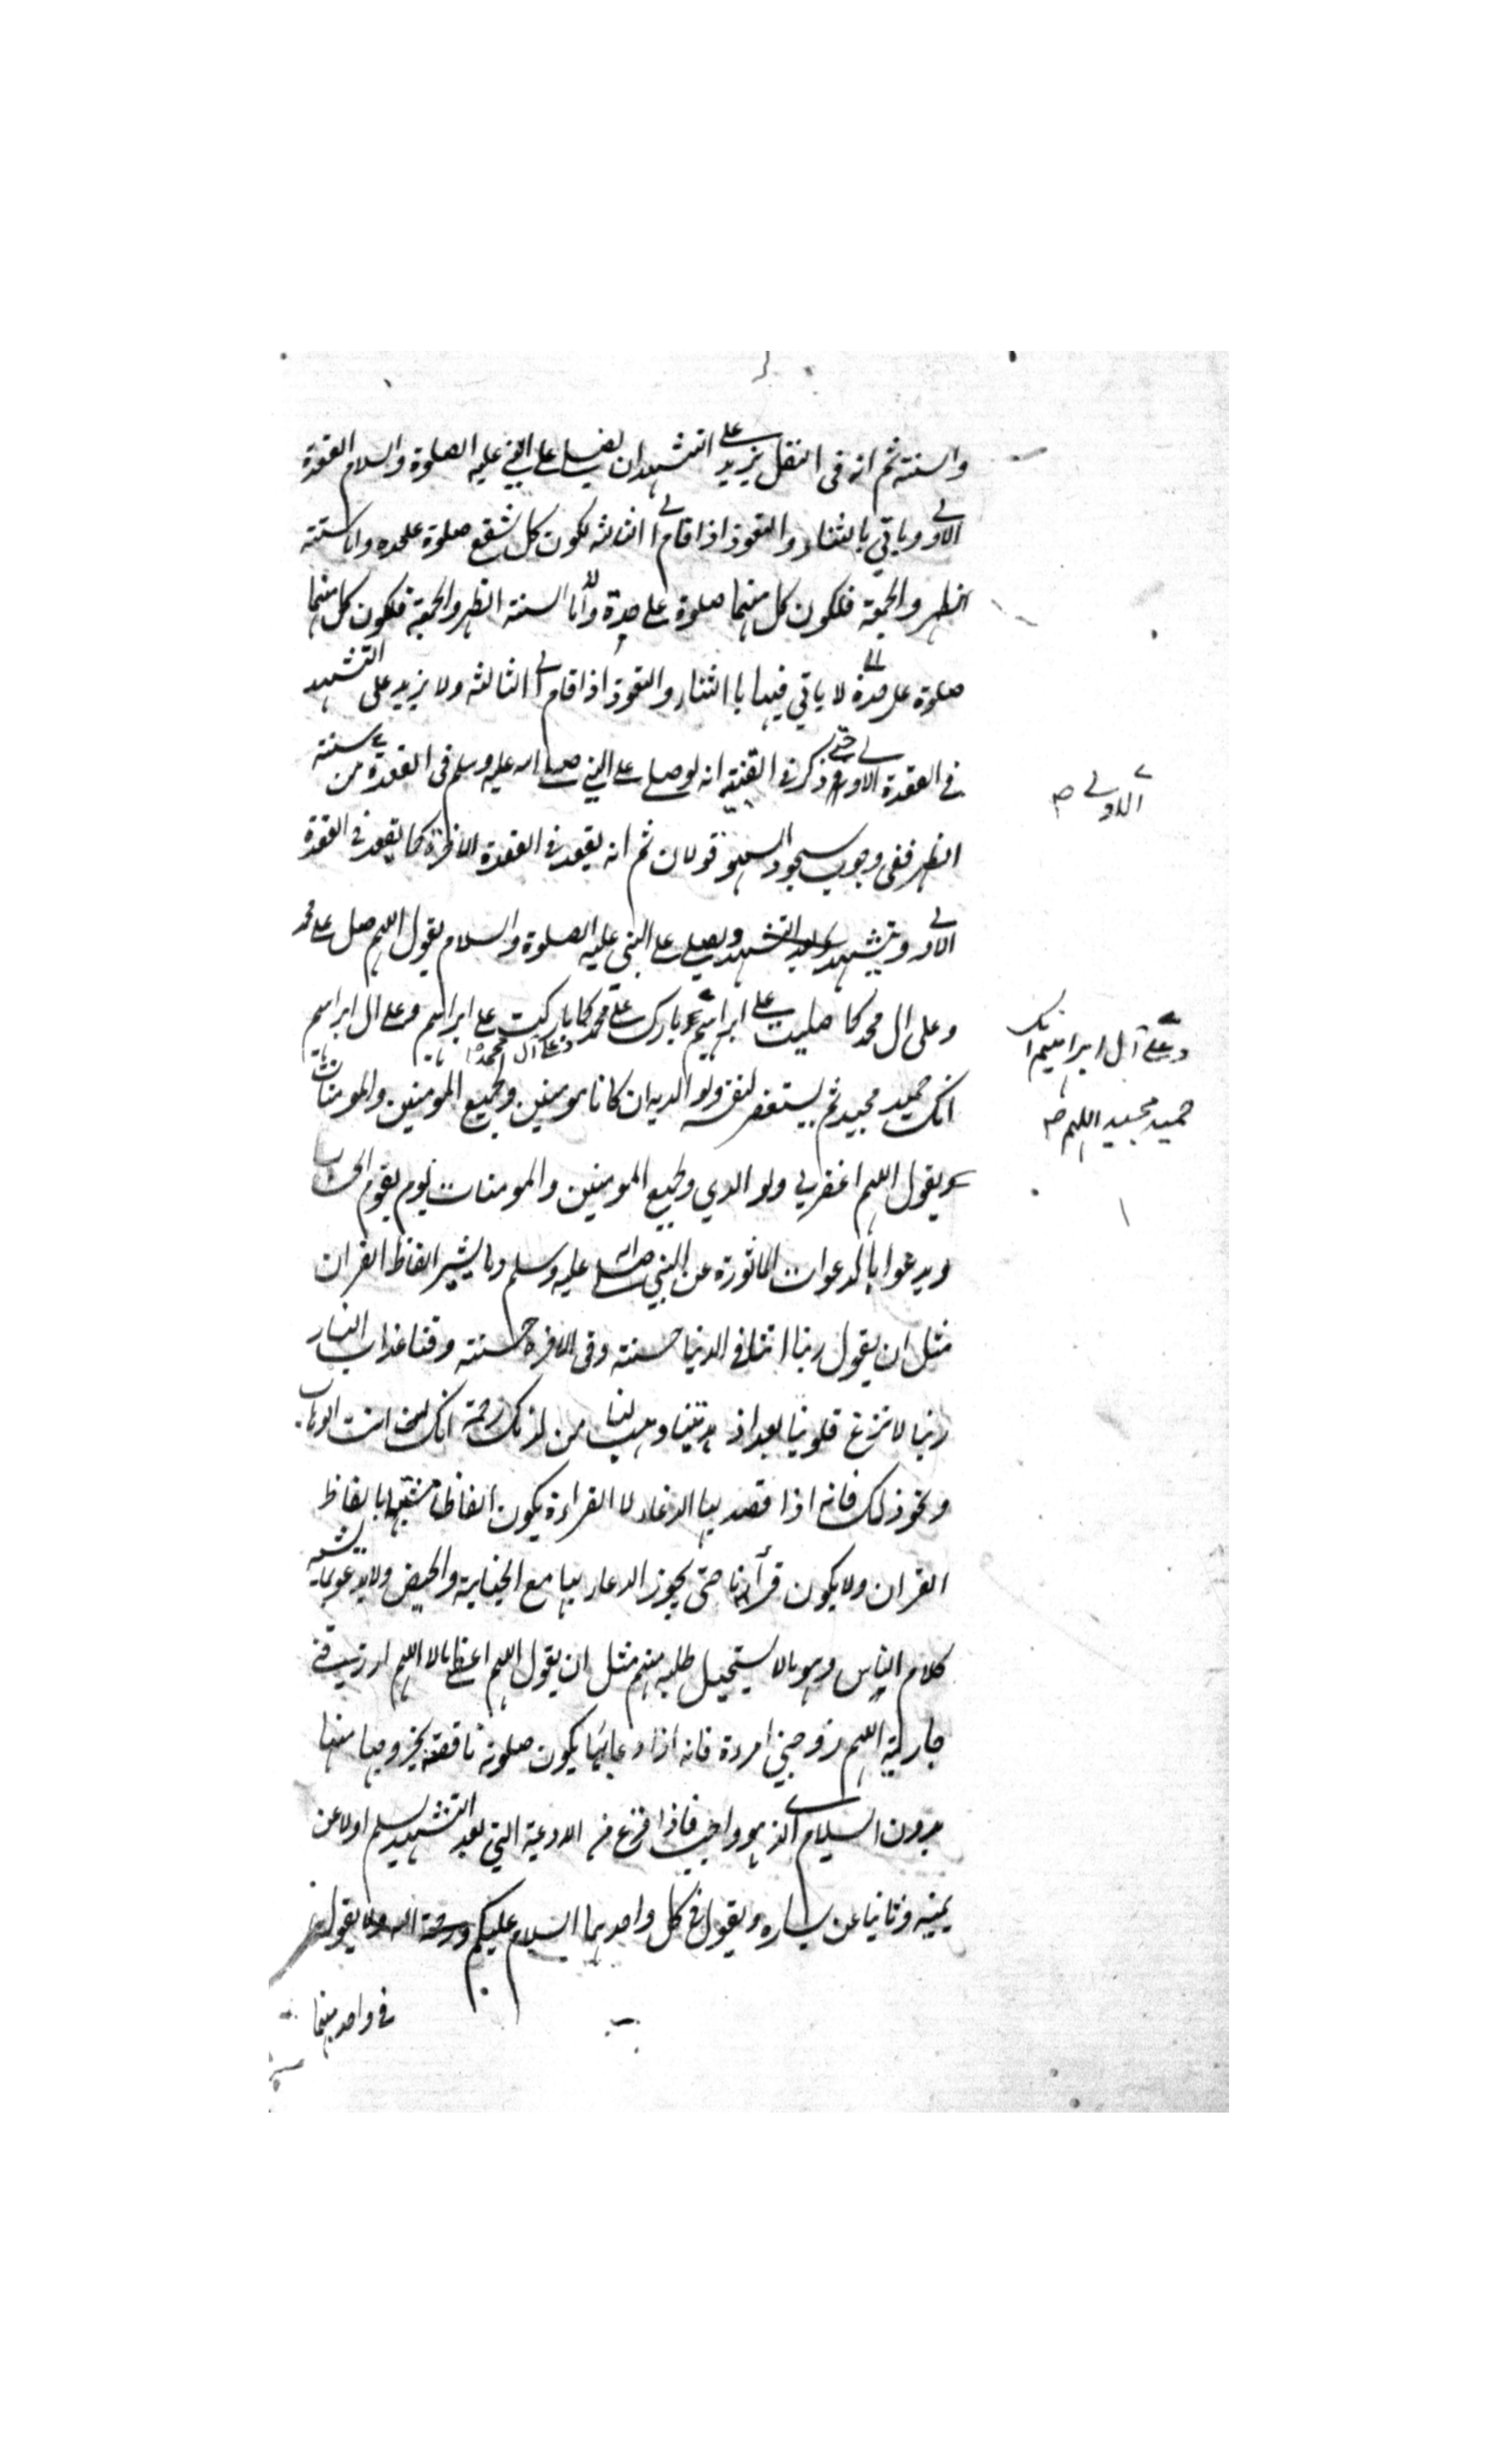 والسنة ثم انه فى النفل يزيد على التشهد ان يصلى على النبى عليه الصلوة والسلام القعدة
الاولى وياتي بالثناء والتعوذ اذا قام الى الثالثة لكون كل شفع صلوة علحده واما سنة
الظهر والجمعة فلكون كل منهما صلوة على حدة واما السنة الظهر والجمعة فلكون كل منهما
صلوة على حدة لا ياتي فيها با الثناء والتعوذ اذا قام الى الثالثة ولا يزيد على التشهد
في القعدة الاولى حتى ذكر في القنية انه لو صلى على النبي صلى الله عليه وسلم فى القعدة من سنة
الاولى صح
الظهر ففى وجوب سجود السهو قولان ثم انه يقعد في القعدة الاخرة كما يقعد في القعدة
الاولى ويتشهد وبعد التشهد ويصلى على النبي عليه الصلوة والسلام يقول اللهم صل على محمد
وعلى ال محمد كما صليت على ابراهيم وبارك على محمد كما باركت على ابراهيم وعلى ال ابراهيم
وعلى آل ابراهيم انك
حميد مجيد اللهم صح
وعلى آل محمد صح
انك حميد مجيد ثم يستغفر لنفسه ولوالديه ان كانا مومنين ولجميع المومنين والمومنات
ويقول اللهم اغفر لي ولوالدي ولجميع المومنين والمومنات يوم يقوم الحساب
ويدعوا بالدعوات الماثورة عن النبي صلى الله عليه وسلم وبما يشبه الفاظ القران
مثل ان يقول ربنا اتنا فى الدنيا حسنة وفى الاخرة حسنة وقنا عذاب النار
ربنا لا تزغ قلوبنا بعد اذ هديتنا وهب لنا من لدنك رحمة انك انت الوهاب
ونحو ذلك فانه اذا قصد بها الدعاء لا القراءة يكون الفاظا مشتبها بالفاظ
القران ولا يكون قرأنا حتى يجوز الدعاء بها مع الجنابة والحيض ولا يدعو بما يشبه
كلام الناس وهو ما لا يستحيل طلبه منهم مثل ان يقول اللهم اعطني مالا اللهم ارزقني
جارية اللهم زوجني امرءة فانه اذا دعا بها يكون صلوته ناقصة لخروجها منها
بدون السلام الذى هو واجب فاذا فرغ من الادعية التي بعد التشهد يسلم اولا عن
يمينه وثانيا عن يساره ويقول في كل واحد منهما السلام عليكم ورحمة الله ولا يقول
في واحد منهما